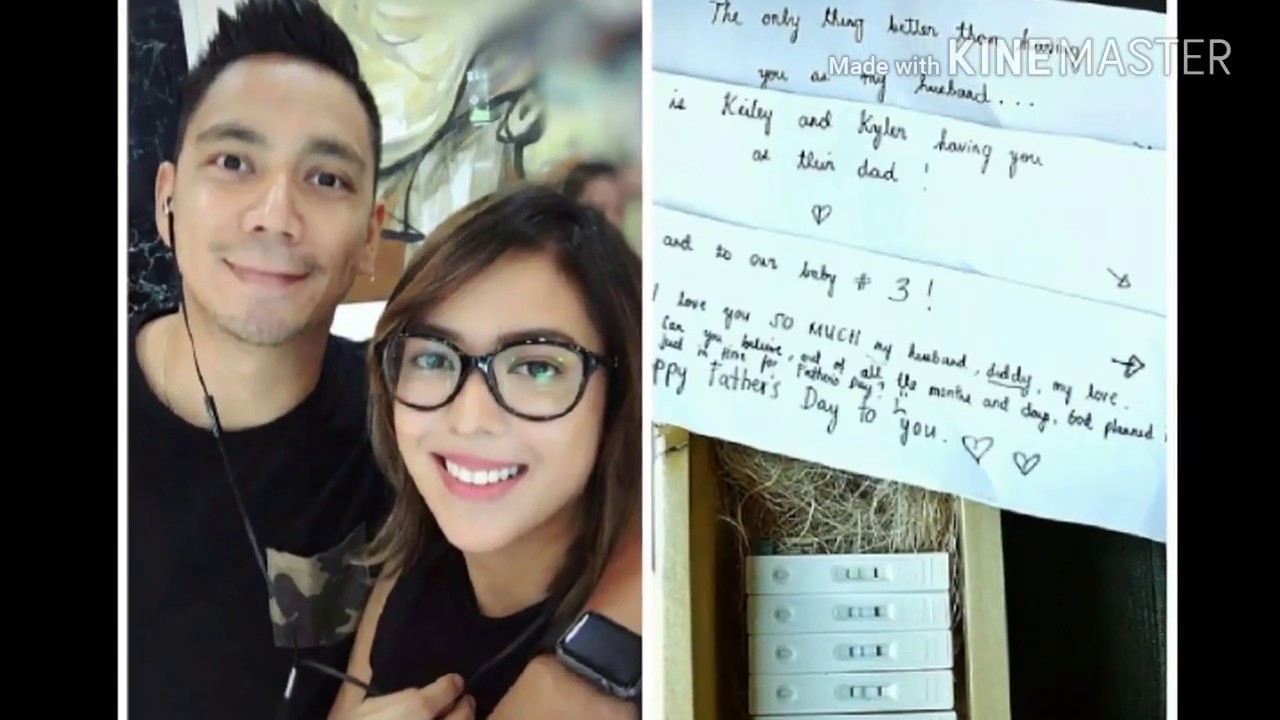 The only thing better than having
Made with KINEMASTER
you as my husband...
is Keiley and Kyler having you
as their dad !
and to our baby # 3 !
I love you SO MUCH my husband, diddy, my love.
Can you believe, out of all the months and days, God planned
just in time for Father's Day?
ppy Father's Day to you.